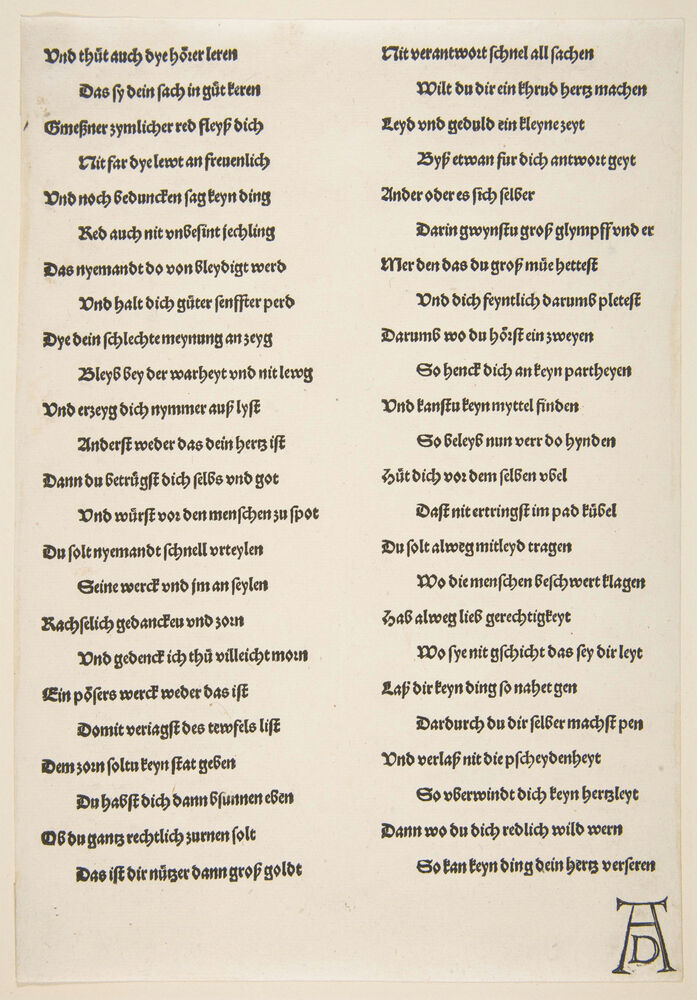 Vnd thůt auch dye hörer leren
Das sy dein sach in gůt keren
Gmeßner zymlicher red fleyß dich
Nit far dye lewt an freuenlich
Vnd noch beduncken sag keyn ding
Red auch nit vnbesint jechling
Das nyemandt do von bleydigt werd
Vnd halt dich gůter senffter perd
Dye dein schlechte meynung an zeyg
Bleyb bey der warheyt vnd nit lewg
Vnd erzeyg dich nymmer auß lyst
Anderst weder das dein hertz ist
Dann du betrügst dich selbs vnd got
Vnd würst vor den menschen zu spot
Du solt nyemandt schnell vrteylen
Seine werck vnd jm an seylen
Rachselich gedanckeu vnd zorn
Vnd gedenck ich thů villeicht morn
Ein pösers werck weder das ist
Domit veriagst des tewfels list
Dem zorn soltu keyn stat geben
Du habst dich dann bsunnen eben
Ob du gantz rechtlich zurnen solt
Das ist dir nützer dann groß goldt
Nit verantwort schnel all sachen
Wilt du dir ein khrud hertz machen
Leyd vnd geduld ein kleyne zeyt
Byß etwan fur dich antwort geyt
Ander oder es sich selber
Darin gwynstu groß glympff vnd er
Mer den das du groß müe hettest
Vnd dich feyntlich darumb pletest
Darumb wo du hörst ein zweyen
So henck dich an keyn partheyen
Vnd kanstu keyn myttel finden
So beleyb nun verr do hynden
Hüt dich vor dem selben vbel
Dast nit ertringst im pad kübel
Du solt alweg mitleyd tragen
Wo die menschen beschwert klagen
Hab alweg lieb gerechtigkeyt
Wo sye nit gschicht das sey dir leyt
Laß dir keyn ding so nahet gen
Dardurch du dir selber machst pen
Vnd verlaß nit die pscheydenheyt
So vberwindt dich keyn hertzleyt
Dann wo du dich redlich wild wern
So kan keyn ding dein hertz verseren
AD